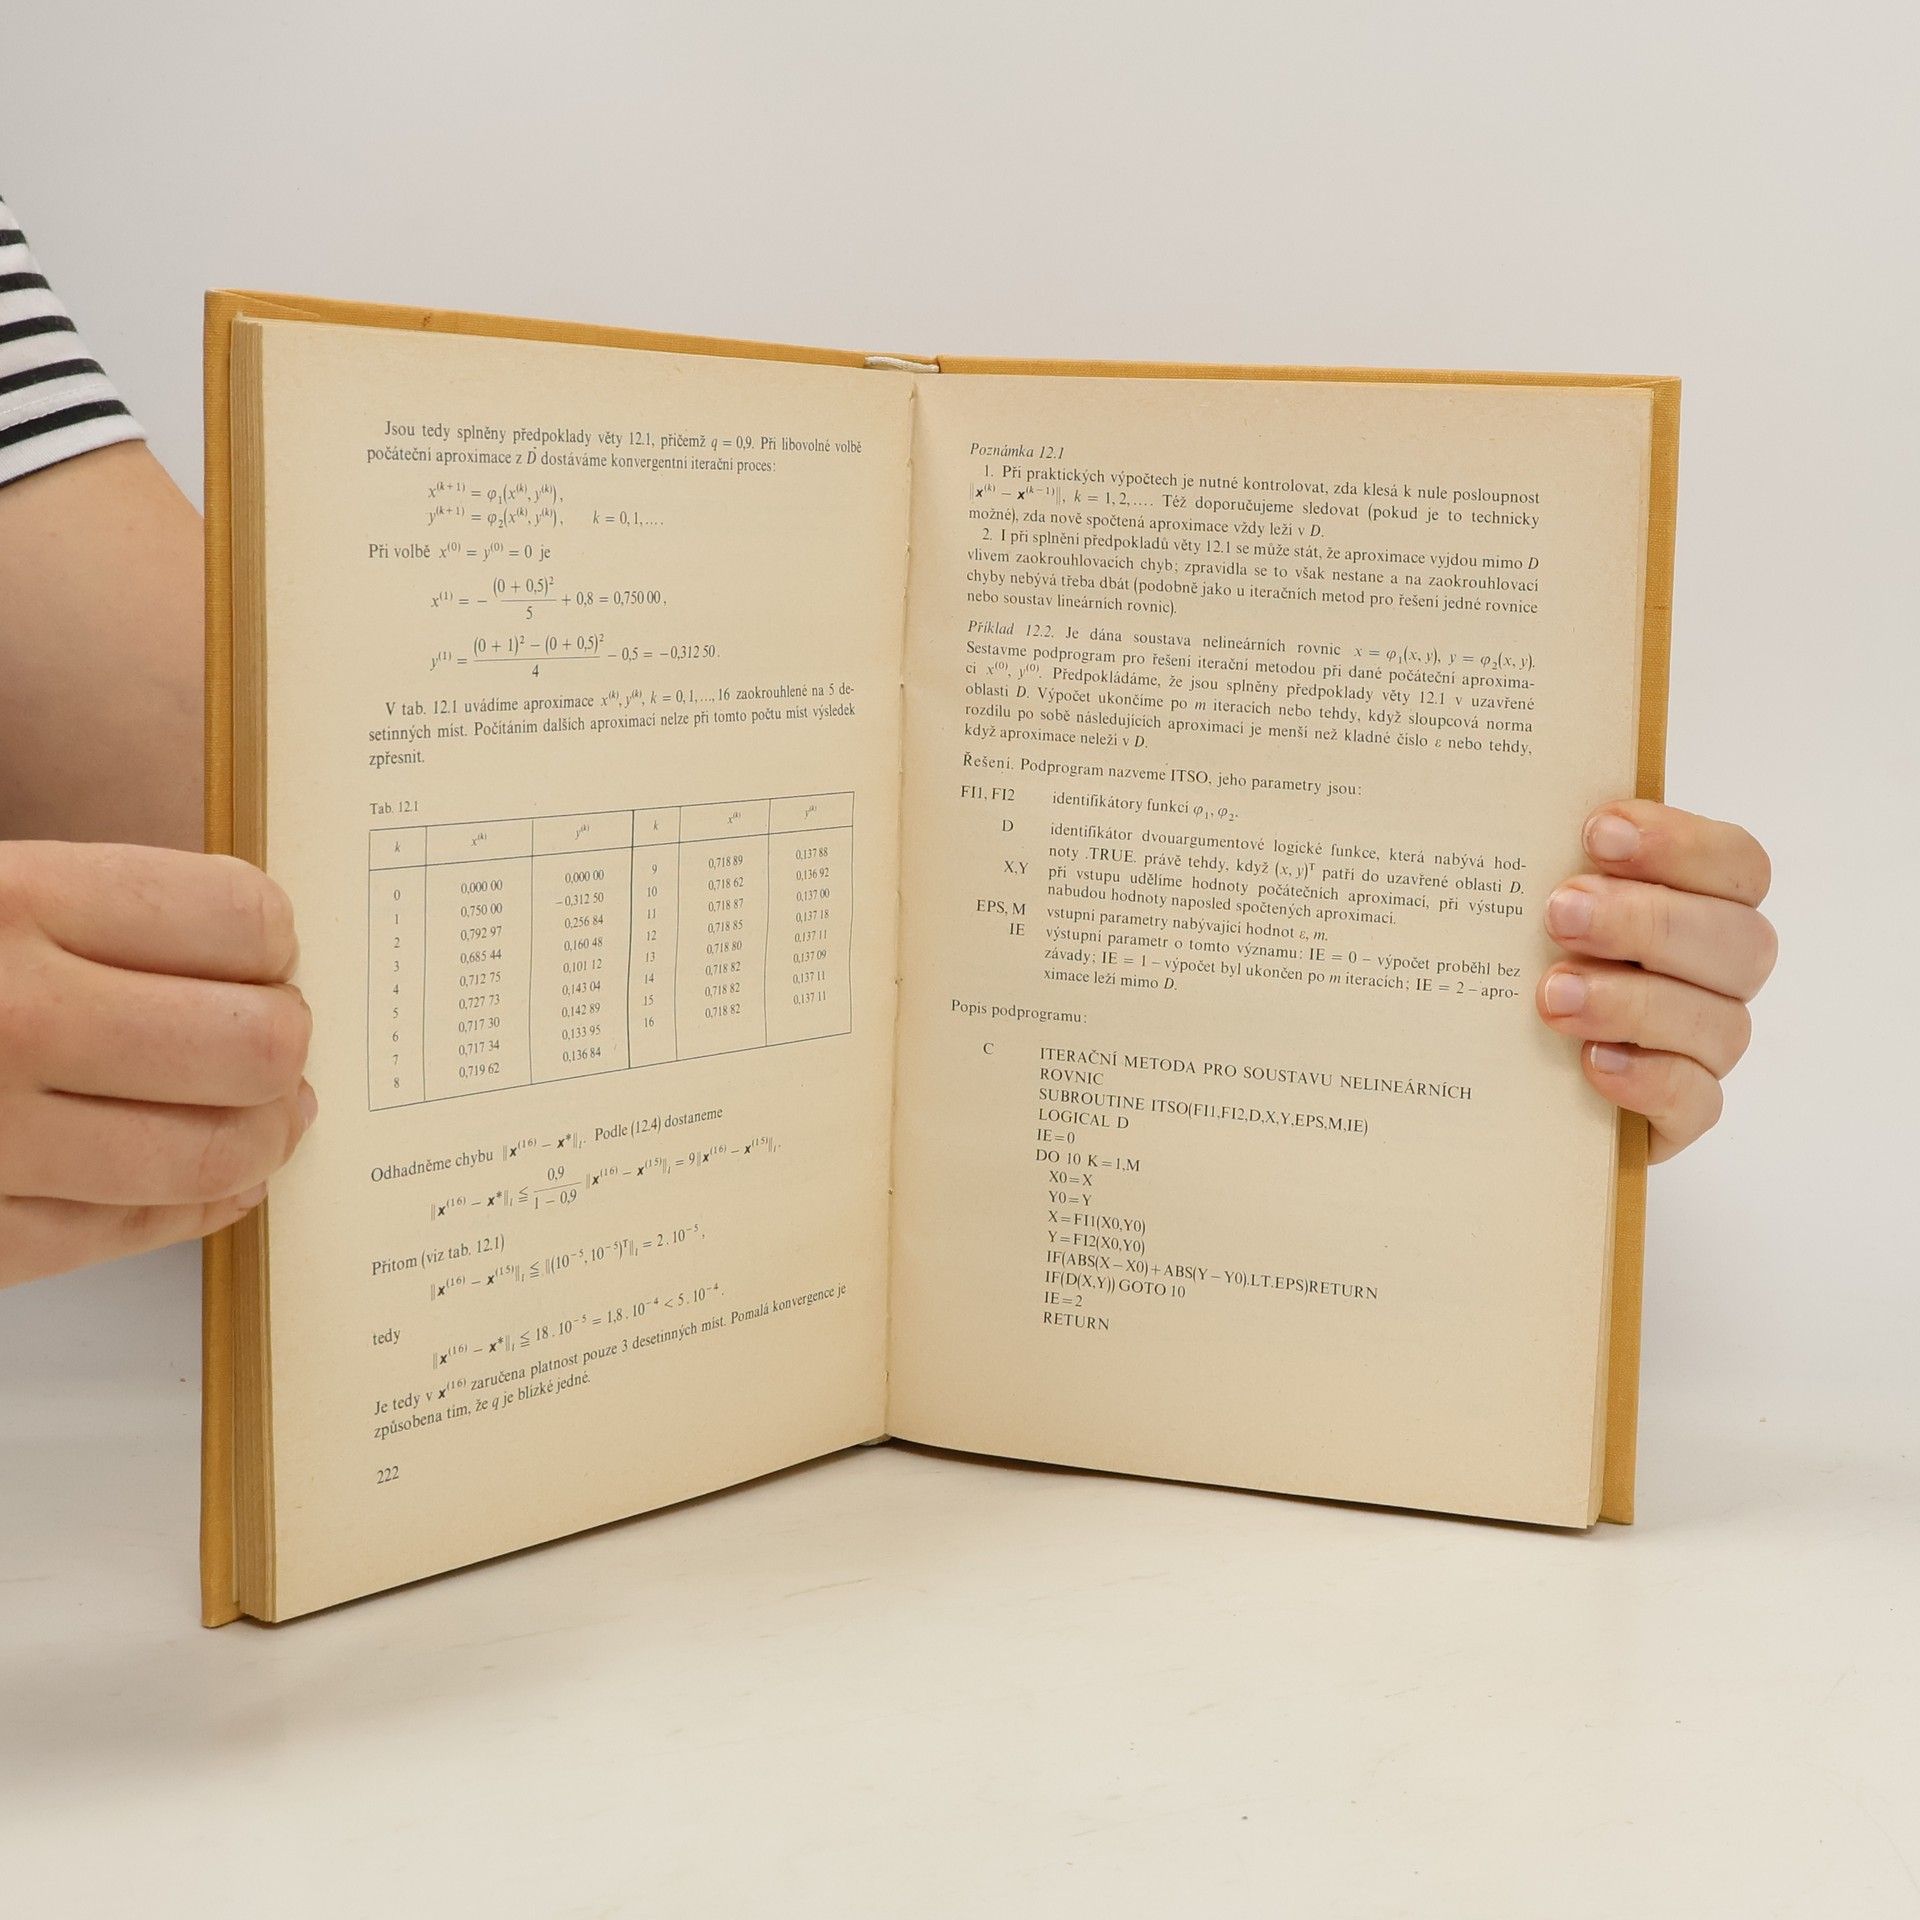 Jsou tedy splněny předpoklady věty 12.1, přičemž q = 0,9. Při libovolné volbě
počáteční aproximace z D dostáváme konvergentní iterační proces:
x^(k+1) = φ₁(x^(k), y^(k)),
y^(k+1) = φ₂(x^(k), y^(k)), k = 0, 1, ....
Při volbě x^(0) = y^(0) = 0 je
x^(1) = − (0 + 0,5)² / 5 + 0,8 = 0,750 00,
y^(1) = ((0 + 1)² − (0 + 0,5)²) / 4 − 0,5 = −0,312 50.
V tab. 12.1 uvádíme aproximace x^(k), y^(k), k = 0, 1, ..., 16 zaokrouhlené na 5 de-
setinných míst. Počítáním dalších aproximací nelze při tomto počtu míst výsledek
zpřesnit.
Tab. 12.1
k x^(k) y^(k) k x^(k) y^(k)
0 0,000 00 0,000 00 9 0,718 89 0,137 88
1 0,750 00 −0,312 50 10 0,718 62 0,136 92
2 0,792 97 0,256 84 11 0,718 87 0,137 00
3 0,685 44 0,160 48 12 0,718 85 0,137 18
4 0,712 75 0,101 12 13 0,718 80 0,137 11
5 0,727 73 0,143 04 14 0,718 82 0,137 09
6 0,717 30 0,142 89 15 0,718 82 0,137 11
7 0,717 34 0,133 95 16 0,718 82 0,137 11
8 0,719 62 0,136 84
Odhadněme chybu ‖x^(16) − x*‖_l. Podle (12.4) dostaneme
‖x^(16) − x*‖_l ≦ 0,9 / (1 − 0,9) ‖x^(16) − x^(15)‖_l = 9‖x^(16) − x^(15)‖_l.
Přitom (viz tab. 12.1)
‖x^(16) − x^(15)‖_l ≦ ‖(10⁻⁵, 10⁻⁵)ᵀ‖_l = 2 . 10⁻⁵,
tedy
‖x^(16) − x*‖_l ≦ 18 . 10⁻⁵ = 1,8 . 10⁻⁴ < 5 . 10⁻⁴.
Je tedy v x^(16) zaručena platnost pouze 3 desetinných míst. Pomalá konvergence je
způsobena tím, že q je blízké jedné.
222
Poznámka 12.1
1. Při praktických výpočtech je nutné kontrolovat, zda klesá k nule posloupnost
‖x^(k) − x^(k−1)‖, k = 1, 2, .... Též doporučujeme sledovat (pokud je to technicky
možné), zda nově spočtená aproximace vždy leží v D.
2. I při splnění předpokladů věty 12.1 se může stát, že aproximace vyjdou mimo D
vlivem zaokrouhlovacích chyb; zpravidla se to však nestane a na zaokrouhlovací
chyby nebývá třeba dbát (podobně jako u iteračních metod pro řešení jedné rovnice
nebo soustav lineárních rovnic).
Příklad 12.2. Je dána soustava nelineárních rovnic x = φ₁(x, y), y = φ₂(x, y).
Sestavme podprogram pro řešení iterační metodou při dané počáteční aproxima-
ci x^(0), y^(0). Předpokládáme, že jsou splněny předpoklady věty 12.1 v uzavřené
oblasti D. Výpočet ukončíme po m iteracích nebo tehdy, když sloupcová norma
rozdílu po sobě následujících aproximací je menší než kladné číslo ε nebo tehdy,
když aproximace neleží v D.
Řešení. Podprogram nazveme ITSO, jeho parametry jsou:
FI1, FI2 identifikátory funkcí φ₁, φ₂.
D identifikátor dvouargumentové logické funkce, která nabývá hod-
noty .TRUE. právě tehdy, když (x, y)ᵀ patří do uzavřené oblasti D.
X,Y při vstupu udělíme hodnoty počátečních aproximací, při výstupu
nabudou hodnoty naposled spočtených aproximací.
EPS, M vstupní parametry nabývající hodnot ε, m.
IE výstupní parametr o tomto významu: IE = 0 – výpočet proběhl bez
závady; IE = 1 – výpočet byl ukončen po m iteracích; IE = 2 – apro-
ximace leží mimo D.
Popis podprogramu:
C ITERAČNÍ METODA PRO SOUSTAVU NELINEÁRNÍCH
ROVNIC
SUBROUTINE ITSO(FI1,FI2,D,X,Y,EPS,M,IE)
LOGICAL D
IE=0
DO 10 K=1,M
X0=X
Y0=Y
X=FI1(X0,Y0)
Y=FI2(X0,Y0)
IF(ABS(X−X0)+ABS(Y−Y0).LT.EPS)RETURN
IF(D(X,Y)) GOTO 10
IE=2
RETURN